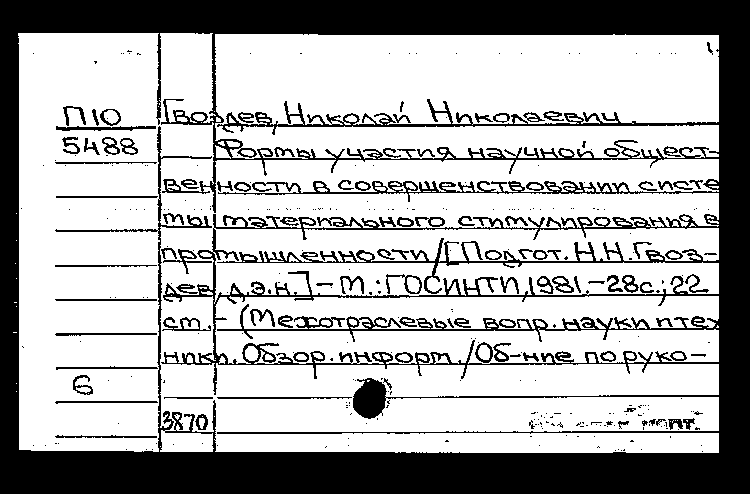 П10 Гвоздев, Николай Николаевич.
5488 Формы участия научной общест-
венности в совершенствовании систе
мы материального стимулирования в
промышленности/[Подгот. Н.Н. Гвоз-
дев, д.э.н.] – М.: ГОСИНТИ, 1981. – 28с.; 22
см. – (Межотраслевые вопр. науки и тех
ники. Обзор. информ./Об-ние по руко-
6
3870